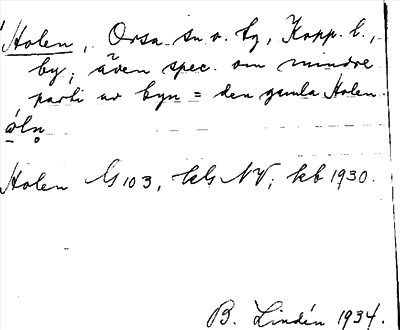 Holen, Orsa sn o. tg, Kopp. l.,
by; även spec. om mindre
parti av byn = den gamla Holen.
òln̥
Holen G 103, kG NV; kb 1930.
B. Lindén 1934.